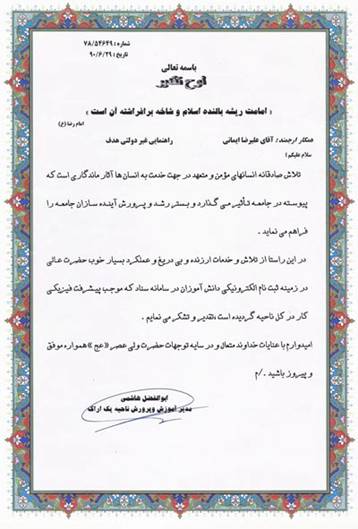 شماره : ۷۸/۵۴۶۴۹
تاریخ : ۹۰/۶/۲۹
باسمه تعالی
لوح تقدیر
« امامت ریشه بالنده اسلام و شاخه برافراشته آن است »
امام رضا (ع)
همکار ارجمند: آقای علیرضا ایمانی راهنمایی غیر دولتی هدف
سلام علیکم ؛
تلاش صادقانه انسانهای مؤمن و متعهد در جهت خدمت به انسان ها آثار ماندگاری است که
پیوسته در جامعه تأثیر می گذارد و بستر رشد و پرورش آینده سازان جامعه را
فراهم می نماید .
در این راستا از تلاش و خدمات ارزنده و بی دریغ و عملکرد بسیار خوب حضرت عالی
در زمینه ثبت نام الکترونیکی دانش آموزان در سامانه سناد که موجب پیشرفت فیزیکی
کار در کل ناحیه گردیده است ،تقدیر و تشکر می نمایم .
امیدوارم با عنایات خداوند متعال و در سایه توجهات حضرت ولی عصر «عج» همواره موفق
و پیروز باشید . /م
ابوالفضل هاشمی
مدیر آموزش وپرورش ناحیه یک اراک